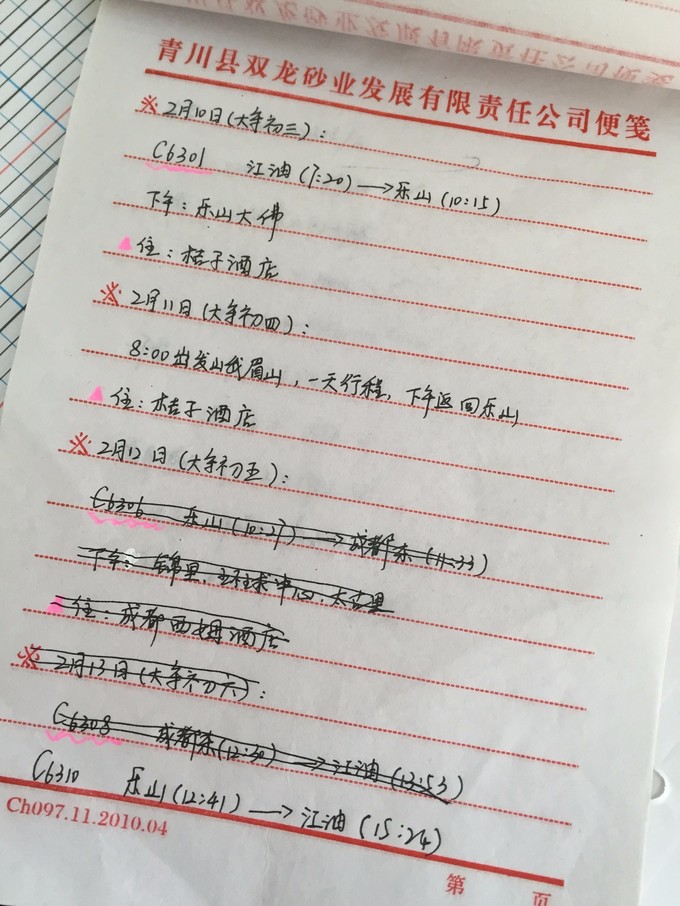 青川县双龙砂业发展有限责任公司便笺
※ 2月10日(大年初三):
C6301 江油(7:20)→乐山(10:15)
下午:乐山大佛
▲住:桔子酒店
※ 2月11日(大年初四):
8:00出发山峨眉山,一天行程,下午返回乐山
▲住:桔子酒店
※ 2月12日(大年初五):
C6306 乐山(10:27)→成都东(11:33)
下午:锦里、环球中心、太古里
▲住:成都西姆酒店
※ 2月13日(大年初六):
C6308 成都东(12:30)→江油(13:53)
C6310 乐山(12:41)→江油(15:24)
Ch097.11.2010.04
第 页